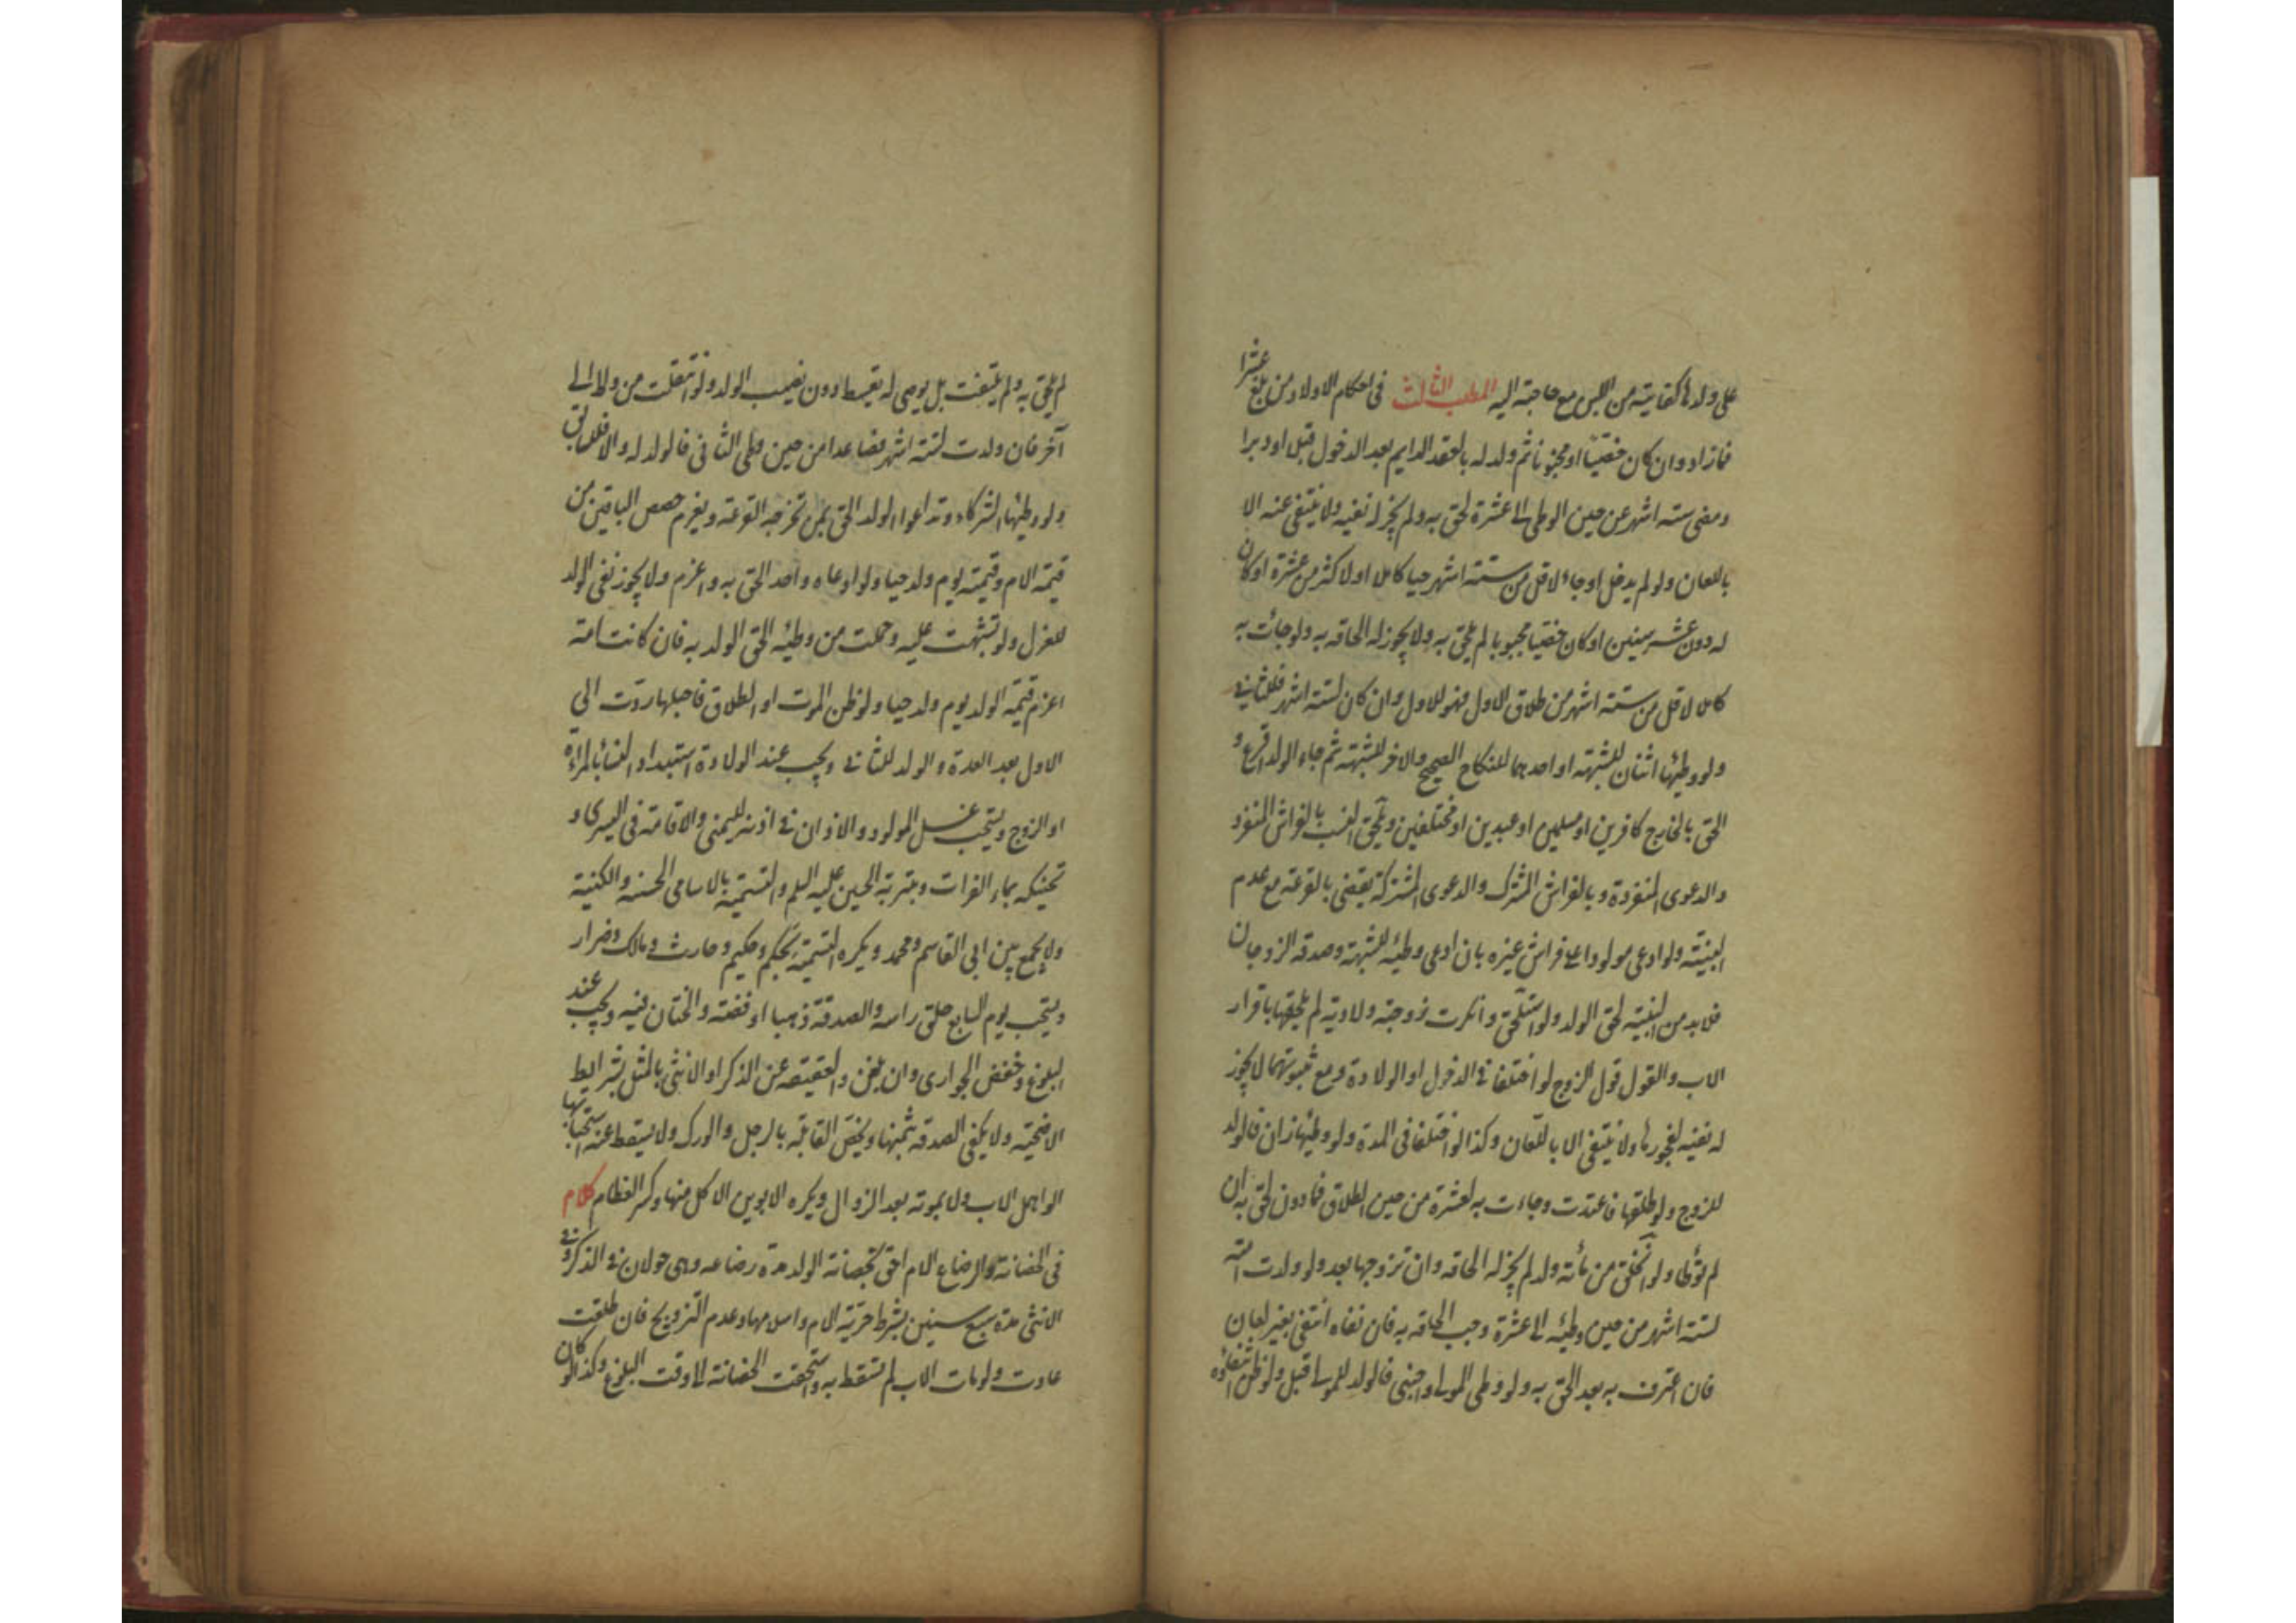 على ولدها كفايته من اللبن مع حاجته اليه المطلب الثالث فى احكام الاولاد من بلغ عشرا
فمازاد وان كان خصيّا او مجنونا ثم ولد له بالعقد الدايم بعد الدخول قبل او دبرا
ومضى ستة اشهر من حين الوطى الى عشرة لحق به ولم يجز له نفيه ولا ينتفى عنه الا
باللعان ولو لم يدخل او جاء لاقل من ستة اشهر حيا كاملا او لاكثر من عشرة او كان
له دون عشر سنين او كان خصيا مجبوبا لم يلحق به ولا يجوز له الحاقه به ولو جائت به
كاملا لاقل من ستة اشهر من طلاق الاول فهو للاول وان كان لستة اشهر فللثانى
ولو وطئها اثنان للشبهة او احدهما للنكاح الصحيح والاخر للشبهة ثم جاء الولد اقرع و
الحق بالخارج كافرين او مسلمين او عبدين او مختلفين ويلحق النسب بالفراش المنفرد
والدعوى المنفردة وبالفراش المشترك والدعوى المشتركة يقضى بالقرعة مع عدم
البينة ولو ادعى مولودا على فراش غيره بان ادعى وطئه للشبهة وصدقه الزوجان
فلا بد من البينة لحق الولد ولو استلحق وانكرت زوجته ولادته لم يلحقها باقرار
الاب والقول قول الزوج لو اختلفا فى الدخول او الولادة ومع ثبوتهما لا يجوز
له نفيه لفجورها ولا ينتفى الا باللعان وكذا لو اختلفا فى المدة ولو وطئها زان فالولد
للزوج ولو طلقها فاعتدت وجاءت به لعشرة من حين الطلاق فمادون لحق به ان
لم توطأ ولو انخلق من مائه ولد لم يجز له الحاقه وان تزوجها بعد ولو ولدت امته
لستة اشهر من حين وطئه الى عشرة وجب الحاقه به فان نفاه انتفى بغير لعان
فان اعترف به بعد الحق به ولو وطى المولى واجنبى فالولد للمولى قيل ولو ظن انتفاؤه
لم يلحق به ولم ينتف بل يوصى له بقسط دون نصيب الولد ولو انتقلت من ولاء الى
آخر فان ولدت لستة اشهر فصاعدا من حين وطى الثانى فالولد له والا فللسابق
ولو وطئها الشركاء وتداعوا الولد الحق بمن تخرجه القرعة ويغرم حصص الباقين من
قيمة الام وقيمته يوم ولد حيا ولو ادعاه واحد الحق به واغرم ولا يجوز نفى الولد
للعزل ولو تشبهت عليه وحملت من وطئه الحق الولد به فان كانت امة
اغرم قيمة الولد يوم ولد حيا ولو ظن الموت او الطلاق فاحبلها ردت الى
الاول بعد العدة والولد للثانى ويجب عند الولادة استبداد النساء بالمرأة
او الزوج ويستحب غسل المولود والاذان فى اذنه اليمنى والاقامة فى اليسرى و
تحنيكه بماء الفرات وبتربة الحسين عليه السلم والتسمية بالاسامى الحسنة والكنية
ولا يجمع بين ابى القاسم ومحمد ويكره التسمية بحكم وحكيم وحارث ومالك وضرار
ويستحب يوم السابع حلق راسه والصدقة ذهبا او فضة والختان فيه ويجب عند
البلوغ وخفض الجوارى وان بلغن والعقيقة عن الذكر او الانثى بالمثل بشرايط
الاضحية ولا يكفى الصدقة بثمنها ويخص القابلة بالرجل والورك ولا يسقط عنه استحبابها
لو اهمل الاب ولا بموته بعد الزوال ويكره الابوين الاكل منها وكسر العظام كلام
فى الحضانة والرضاع الام احق بحضانة الولد مدة رضاعه وهى حولان فى الذكر وفى
الانثى مدة سبع سنين بشرط حرية الام واسلامها وعدم التزويج فان طلقت
عادت ولو مات الاب لم تسقط به واستحقت الحضانة الى وقت البلوغ وكذا لو كان